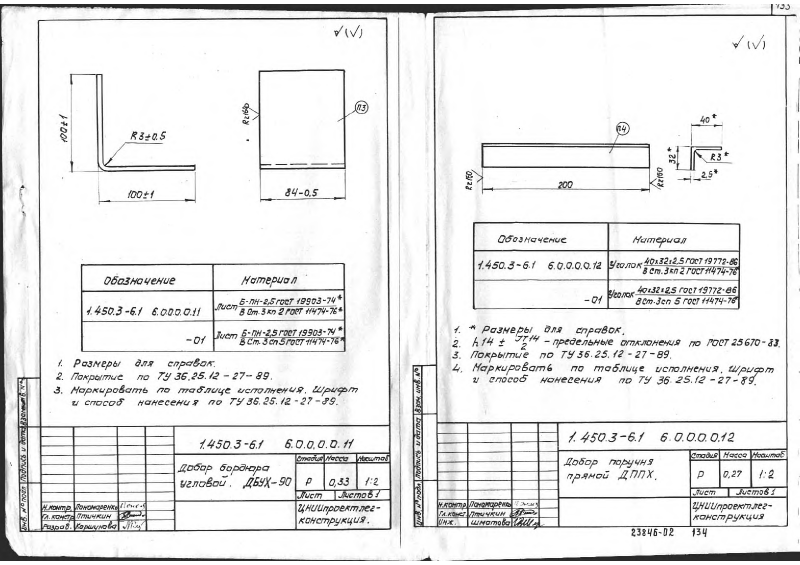 133
√(√)
100±1
R3±0.5
100±1
Rz160
П3
84-0.5
Обозначение Материал
1.450.3-6.1 6.0.0.0.11 Лист Б-ПН-2,5 ГОСТ 19903-74*
В Ст.3 кп 2 ГОСТ 11474-76*
-01 Лист Б-ПН-2,5 ГОСТ 19903-74*
В Ст.3 сп 5 ГОСТ 11474-76*
1. Размеры для справок.
2. Покрытие по ТУ 36.25.12-27-89.
3. Маркировать по таблице исполнения. Шрифт
и способ нанесения по ТУ 36.25.12-27-89.
1.450.3-6.1 6.0.0.0.11
Добор бордюра
угловой. ДБУХ-90
Стадия Масса Масштаб
Р 0,33 1:2
Лист Листов 1
ЦНИИпроектлег-
конструкция.
Н.контр. Пономаренко
Гл.констр. Птичкин
Разраб. Коршунова
Инв. № подл. Подпись и дата Взам.инв. №
√(√)
П4
Rz160
200
Rz160
40*
32*
R3*
2,5*
Обозначение Материал
1.450.3-6.1 6.0.0.0.12 Уголок 40х32х2.5 ГОСТ 19772-86
В Ст.3 кп 2 ГОСТ 11474-76*
-01 Уголок 40х32х2,5 ГОСТ 19772-86
В Ст.3 сп 5 ГОСТ 11474-76*
1. * Размеры для справок.
2. h14 ± JT14/2 - предельные отклонения по ГОСТ 25670-83.
3. Покрытие по ТУ 36.25.12-27-89.
4. Маркировать по таблице исполнения. Шрифт
и способ нанесения по ТУ 36.25.12-27-89.
1.450.3-6.1 6.0.0.0.12
Добор поручня
прямой ДППХ.
Стадия Масса Масштаб
Р 0,27 1:2
Лист Листов 1
ЦНИИпроектлег-
конструкция
Н.контр. Пономаренко
Гл.конст. Птичкин
Инж. Шматова
Инв. № подл. Подпись и дата Взам.инв. №
23846-02 134